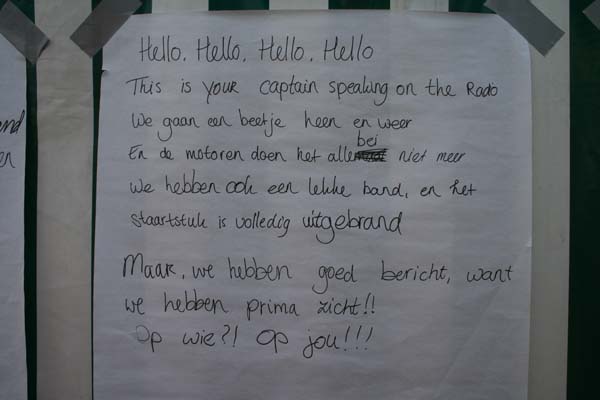 Hello, Hello, Hello, Hello
This is your captain speaking on the Rado
We gaan een beetje heen en weer
En de motoren doen het allebei niet meer
We hebben ook een lekke band, en het
staartstuk is volledig uitgebrand
Maar, we hebben goed bericht, want
we hebben prima zicht!!
Op wie?! Op jou!!!